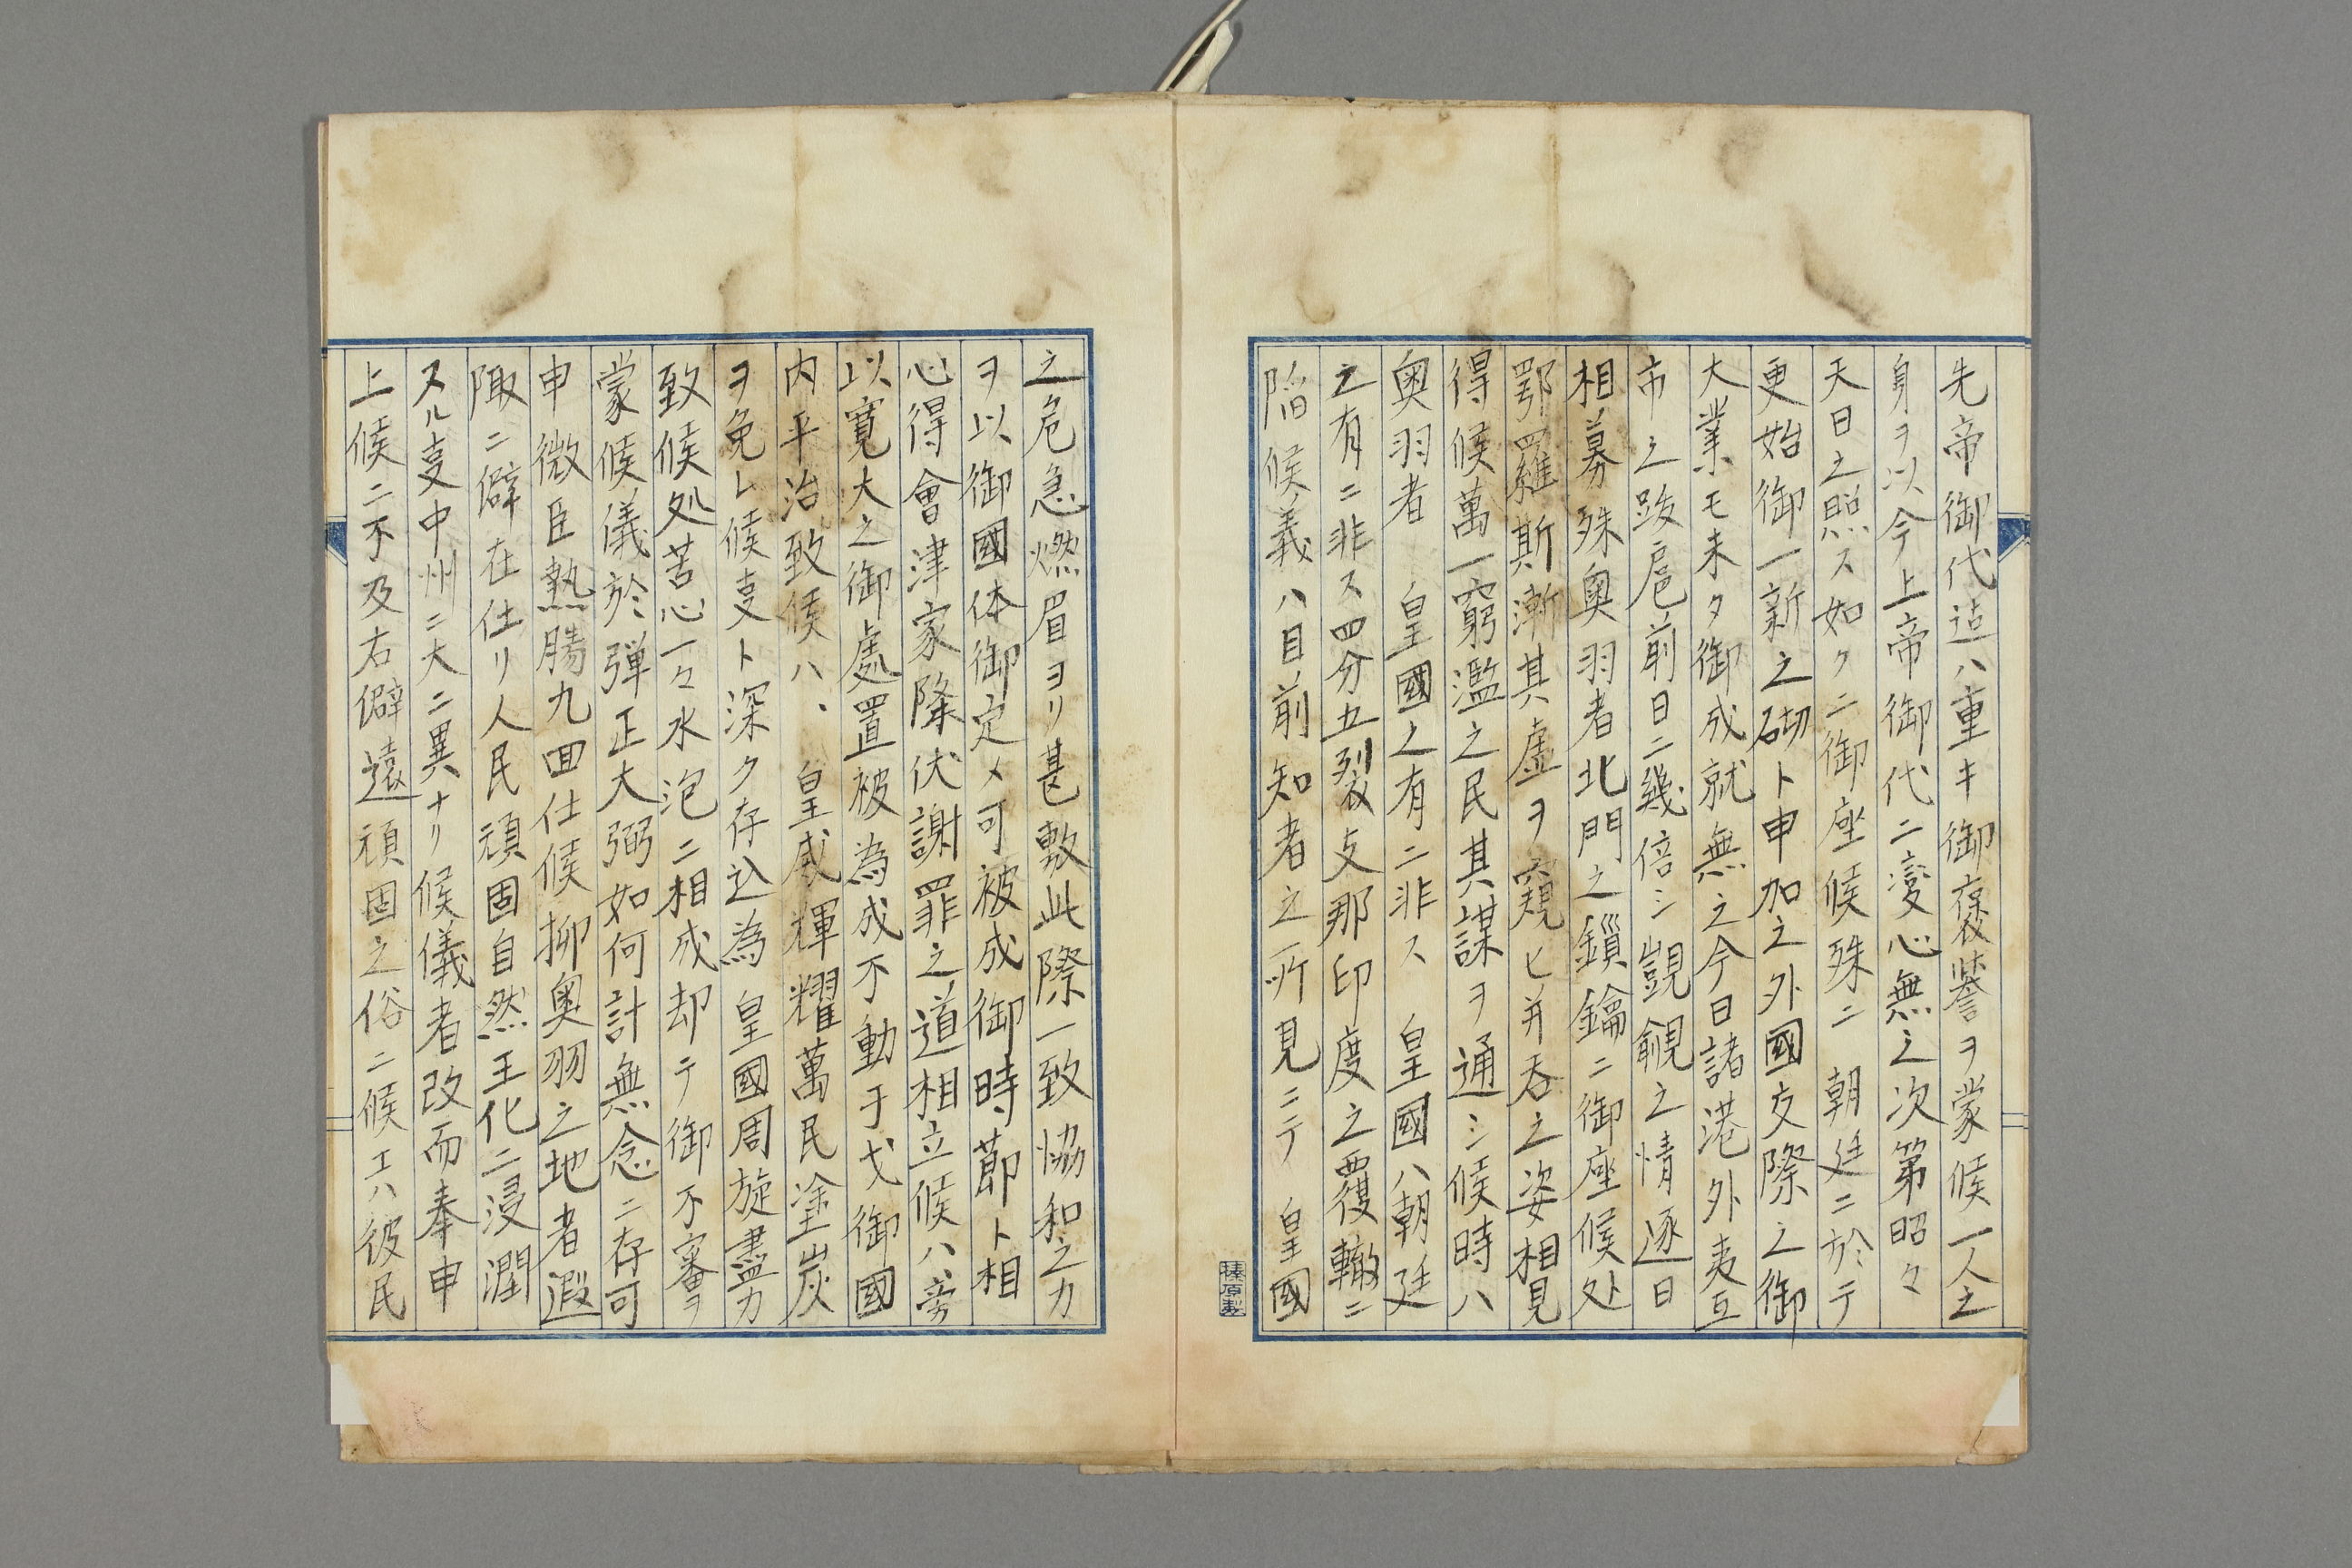 先帝御代迠ハ重キ御褒誉ヲ蒙候一人之
身ヲ以今上帝御代ニ変心無之次第昭々
天日之照ス如クニ御座候殊ニ　朝廷ニ於テ
更始御一新之砌ト申加之外國交際之御
大業モ未タ御成就無之今日諸港外夷互
市之跋扈前日ニ幾倍シ覬覦之情逐日
相募殊奥羽者北門之鎖鑰ニ御座候处
鄂羅斯漸其虚ヲ窺ヒ并呑之姿相見
得候萬一窮濫之民其謀ヲ通シ候時ハ
奥羽者　皇國之有ニ非ス　皇國ハ朝廷
之有ニ非ス四分五裂支那印度之覆轍ニ
陥候義ハ目前知者之所見ニテ　皇國
之危急燃眉ヨリ甚敷此際一致恊和之力
ヲ以御國体御定メ可被成御時節ト相
心得會津家降伏謝罪之道相立候ハ旁
以寛大之御處置被為成不動干戈御國
内平治致候ハ、　皇威輝耀萬民塗炭
ヲ免レ候叓ト深ク存込為　皇國周旋盡力
致候処苦心一々水泡ニ相成却テ御不審ヲ
蒙候儀於弾正大弼如何計無念ニ存可
申微臣熱腸九回仕候抑奥羽之地者遐
陬ニ僻在仕リ人民頑固自然王化ニ浸潤
スル叓中州ニ大ニ異ナリ候儀者改而奉申
上候ニ不及右僻遠頑固之俗ニ候エハ彼民
榛原製